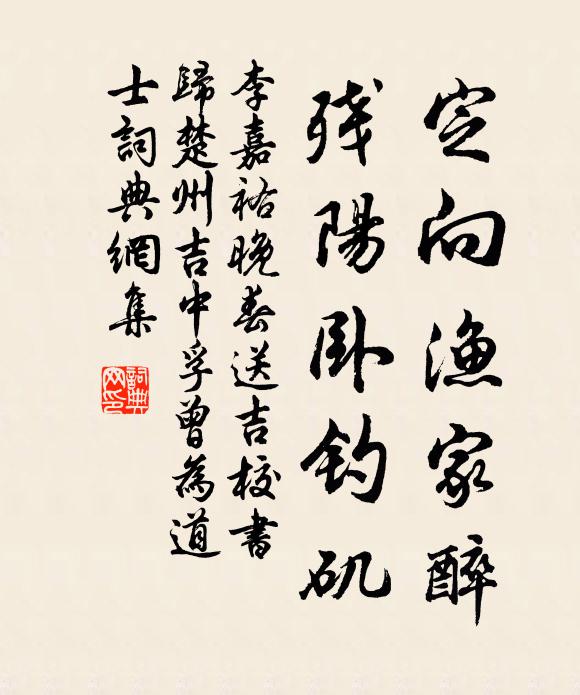 定向漁家醉
残陽臥釣矶
李嘉祐晚春送吉校書
歸楚州吉中孚曾為道
士詞典網集
詞典
网印